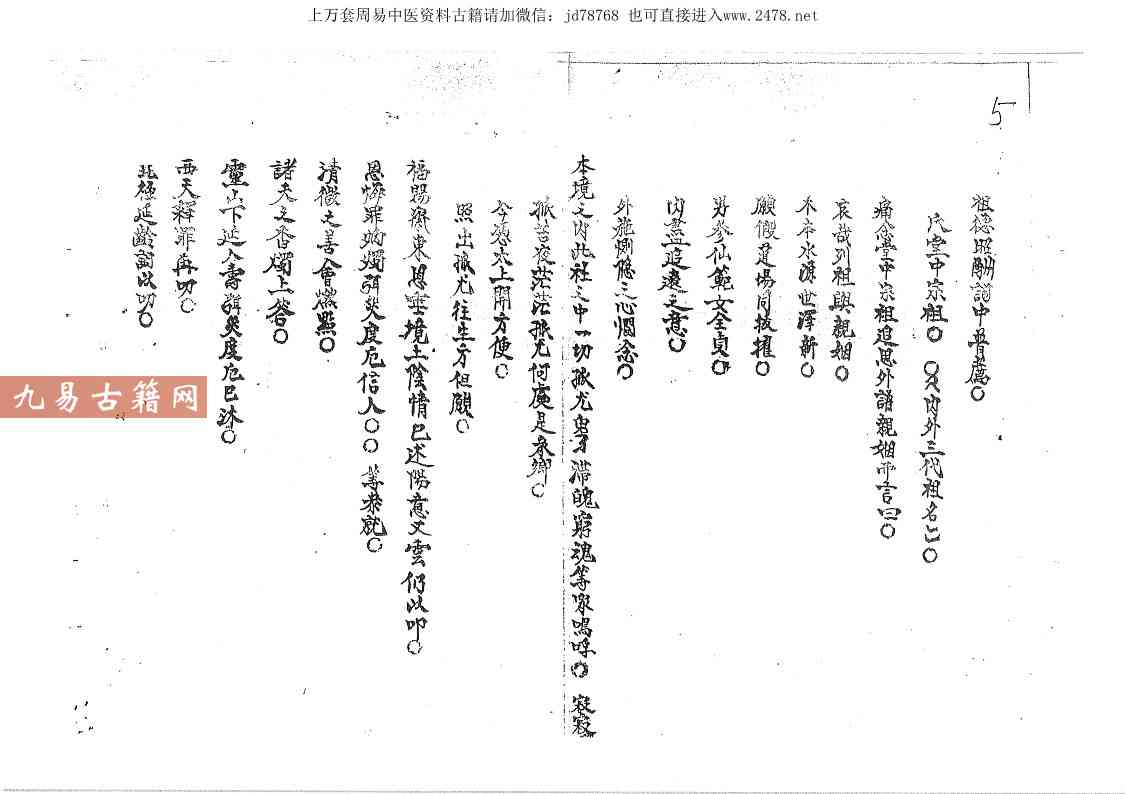 上万套周易中医资料古籍请加微信：jd78768 也可直接进入www.2478.net
5
祖德昭酬詞中普薦〇
氏堂中宗祖〇 〇又內外三代祖名亡〇
痛念堂中宗祖追思外諸親姻而言曰〇
哀哉列祖與親姻〇
木本水源世澤新〇
願假道場同拔擢〇
男參仙範女全貞〇
內盡追遠之意〇
外施惻隱之心憫念〇
本境之內此社之中一切孤尤男女滯魄窮魂等眾嗚呼〇 寂寂
孤苦夜茫茫孤尤何處是家鄉〇
今憑水上開方便〇
照出孤尤往生方但願〇
福賜齋東恩垂境土陰情已述陽意文雲仍以叩〇
恩懺罪炳燭弭災度厄信人〇〇 等恭就〇
清微之善會燃點〇
諸天之香燭上答〇
靈山下延人壽弭災度厄已沐〇
西天釋罪再叨〇
北極延齡詞以叨〇
九易古籍网